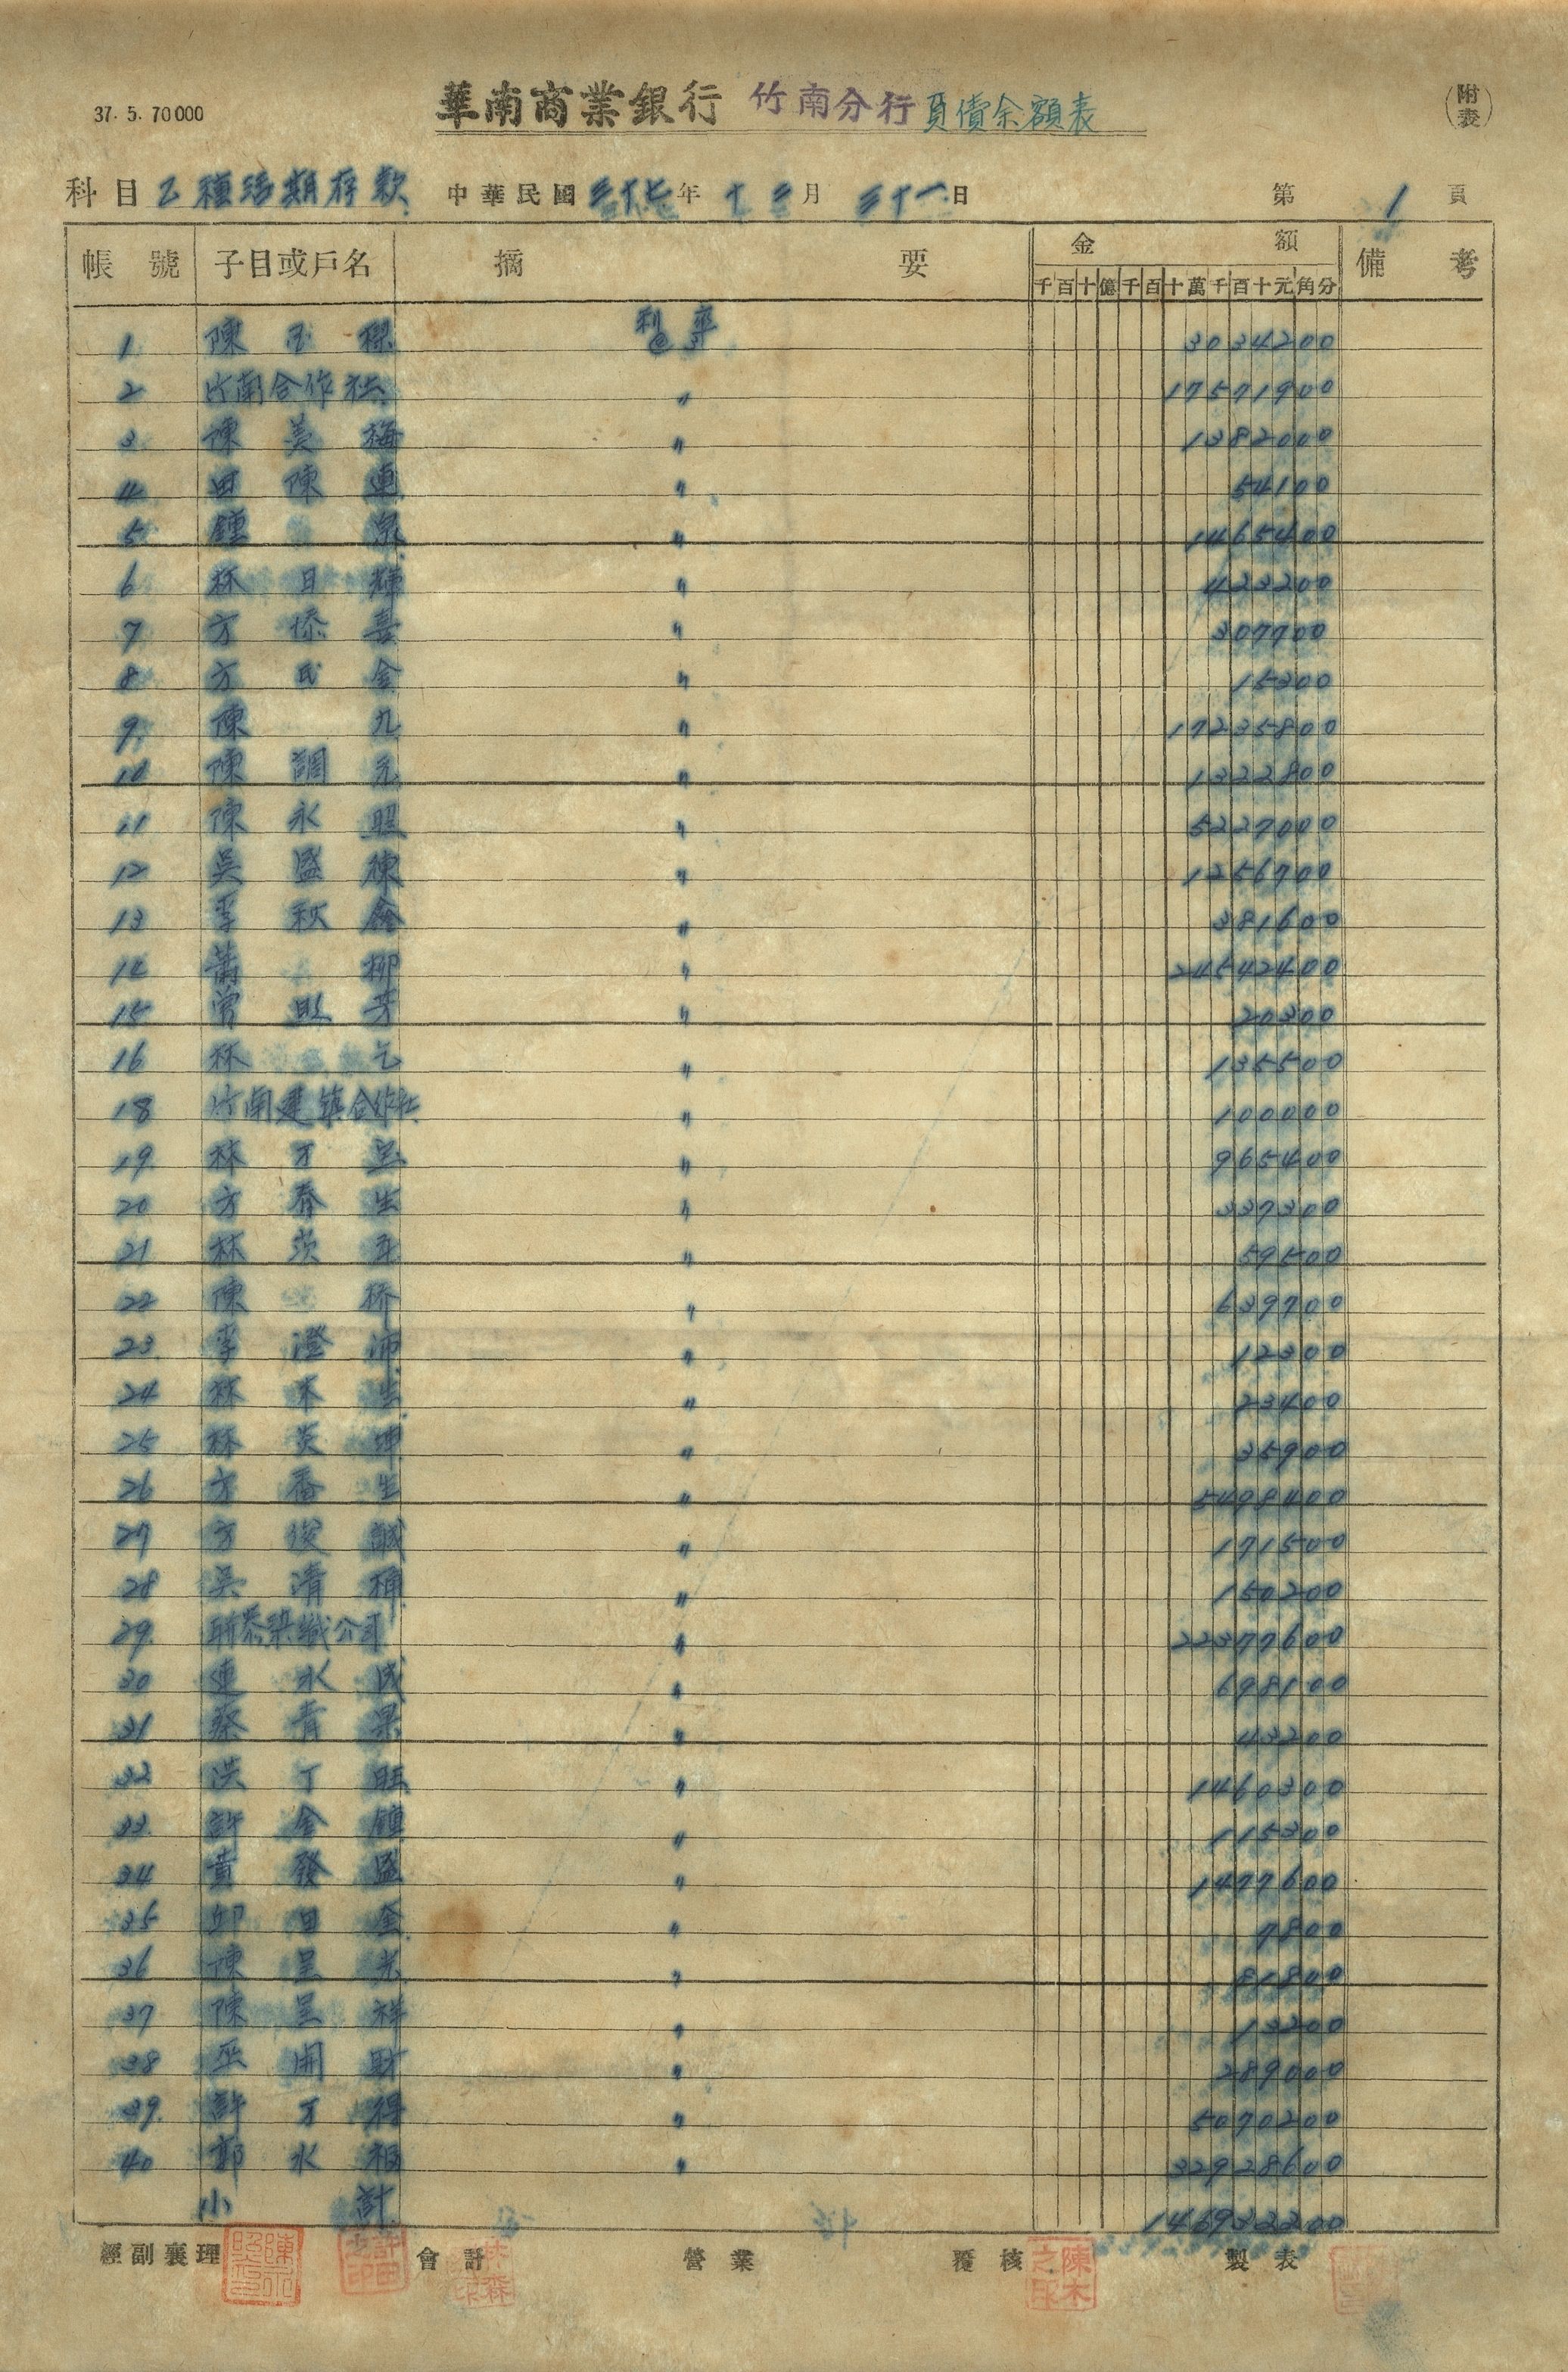 37. 5. 70000
華南商業銀行 竹南分行 負債余額表
(附表)
科目 乙種活期存款 中華民國 三十七 年 十二 月 三十一 日 第 1 頁
帳號 子目或戶名 摘要 金額 備考
千百十億千百十萬千百十元角分
利率
1 陳玉 @ 3034200
2 竹南合作社 〃 17571900
3 陳美梅 〃 1382000
4 田陳連 〃 54100
5 鍾泉 〃 1465400
6 林日輝 〃 423200
7 方添喜 〃 307700
8 方氏金 〃 15300
9 陳九 〃 17235800
10 陳調元 〃 1322800
11 陳永照 〃 5227000
12 吳盛 〃 1256700
13 李秋鑫 〃 381600
14 蕭柳 〃 24542400
15 曾照芳 〃 20300
16 林乞 〃 135500
18 竹南建鎮合作社 〃 100000
19 林才 〃 965400
20 方春生 〃 337300
21 林炎 〃 59500
22 陳桥 〃 639700
23 李澄沛 〃 12300
24 林木生 〃 23400
25 林英坤 〃 35900
26 方番生 〃 5498400
27 方俊誠 〃 171500
28 吳清 〃 150200
29 聯泰染織公司 〃 22377600
30 連水成 〃 698100
31 蔡青果 〃 43200
32 洪丁旺 〃 1460300
33 許金鎮 〃 115300
34 黃發盛 〃 1477600
35 邱日金 〃 7800
36 陳呈光 〃 81800
37 陳呈祥 〃 13200
38 巫開財 〃 289000
39 許丁得 〃 5070200
40 郭水祖 〃 32928600
小計 146932200
經副襄理 會計 營業 覆核 製表